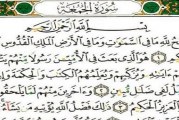 سُورَةُ الجُمُعَةِ
بِسْمِ اللَّهِ الرَّحْمَٰنِ الرَّحِيمِ
حُ لِلَّهِ مَا فِي السَّمَٰوَٰتِ وَمَا فِي الْأَرْضِ الْمَلِكِ الْقُدُّوسِ
هُوَ الَّذِي بَعَثَ فِي الْأُمِّيِّـۧنَ رَسُولًا مِّنْهُمْ
ءَايَٰتِهِ وَيُزَكِّيهِمْ وَيُعَلِّمُهُمُ الْكِتَٰبَ وَالْحِكْمَةَ
لَفِي ضَلَٰلٍ مُّبِينٍ وَءَاخَرِينَ مِنْهُمْ لَمَّا يَلْحَقُوا
الْعَزِيزُ الْحَكِيمُ ذَٰلِكَ فَضْلُ اللَّهِ يُؤْتِيهِ مَن يَشَاءُ